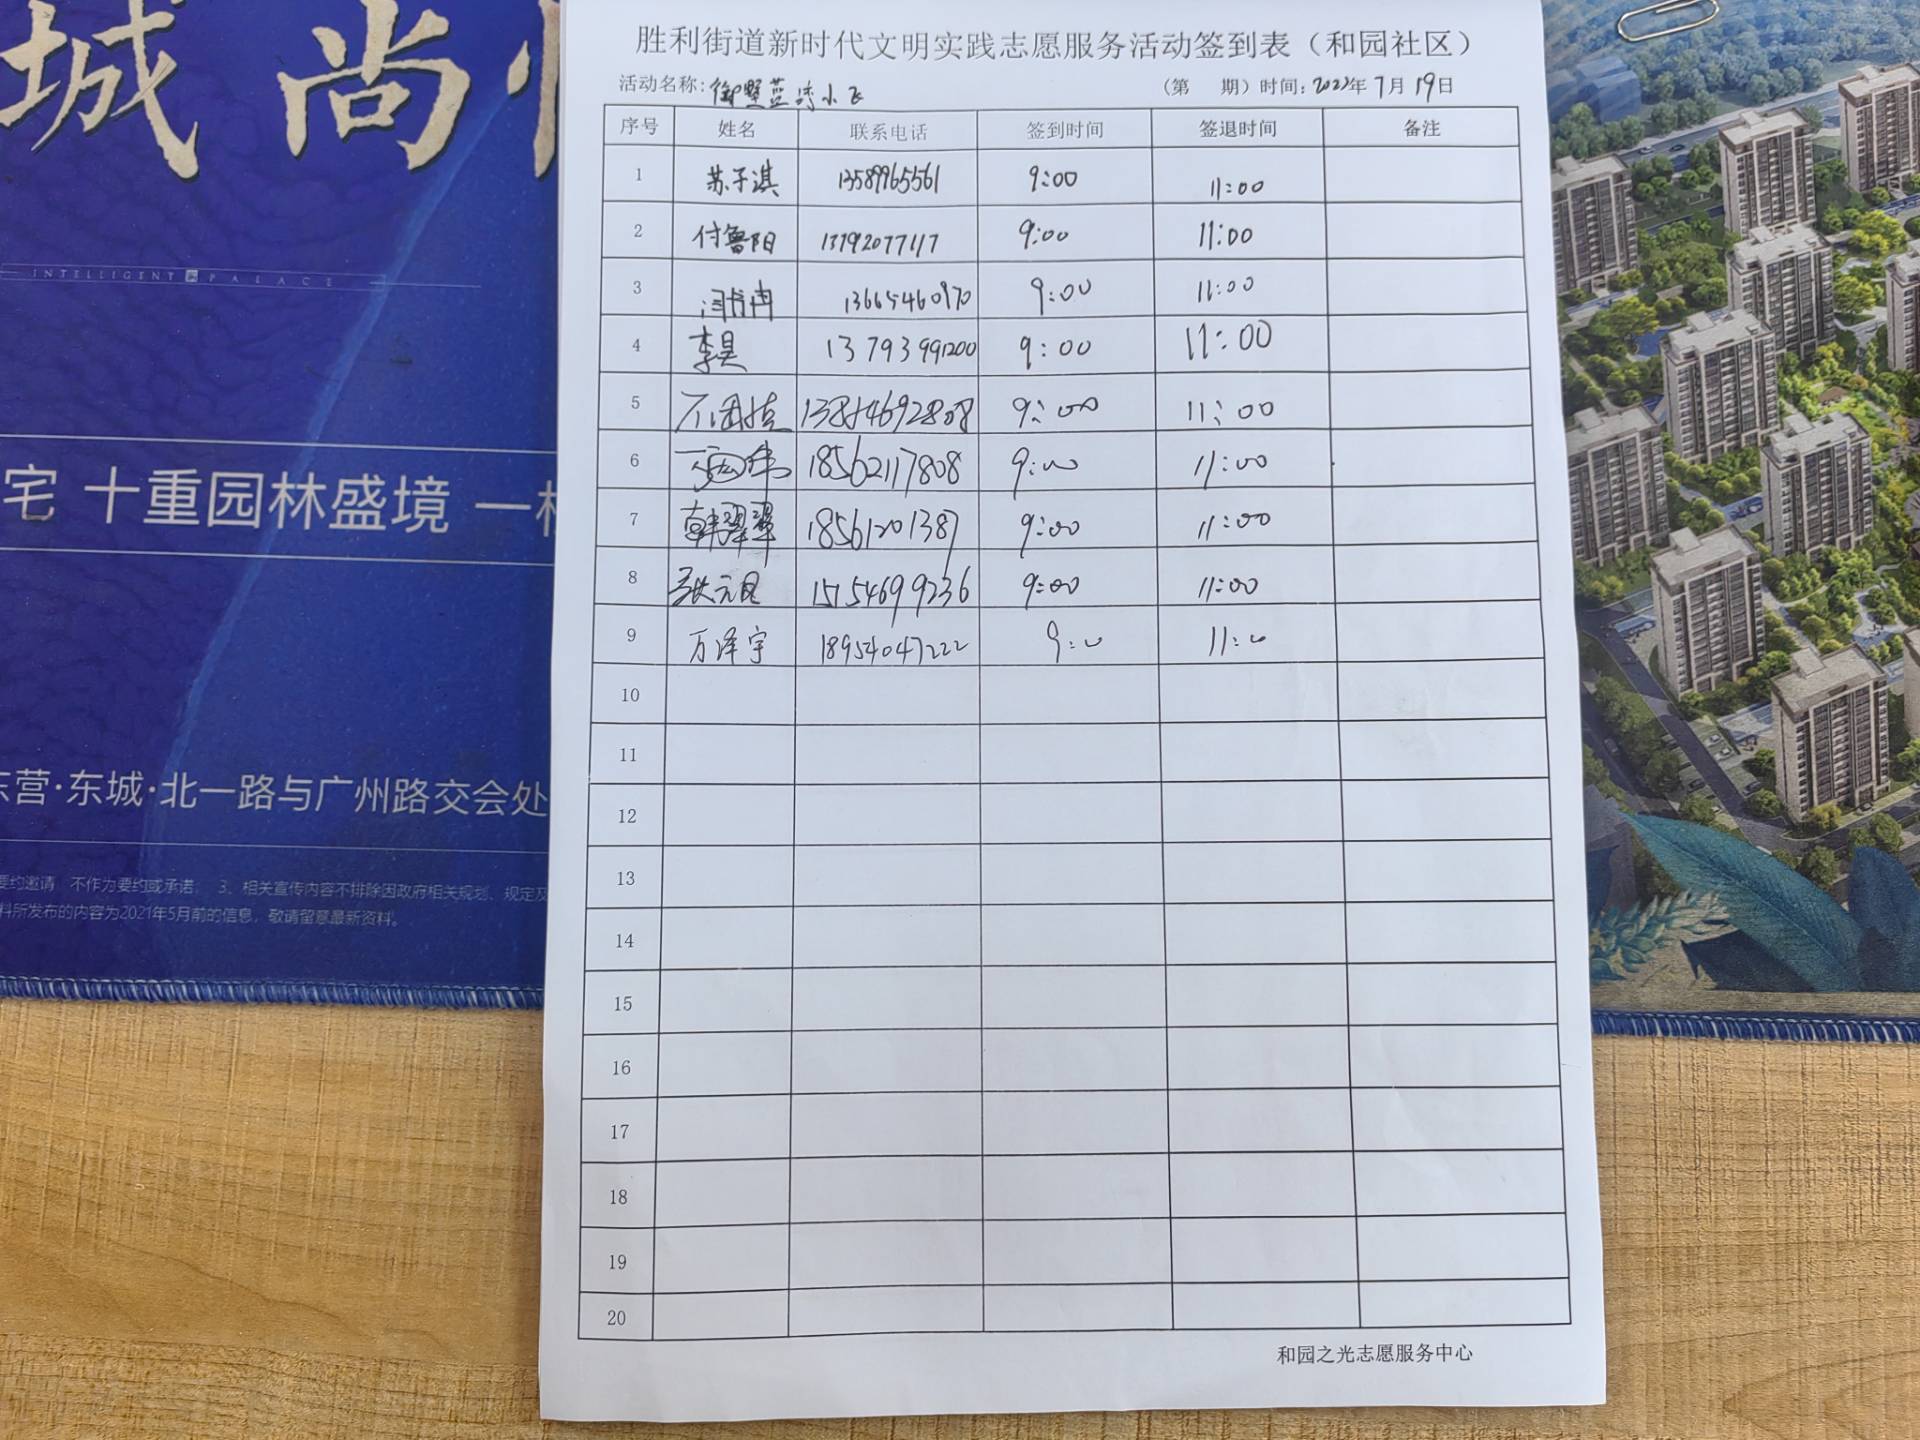 城 尚
INTELLIGENT PALACE
宅 十重园林盛境 一
东营·东城·北一路与广州路交会处
要约邀请，不作为要约或承诺； 3、相关宣传内容不排除因政府相关规划、规定及
料所发布的内容为2021年5月前的信息，敬请留意最新资料。
胜利街道新时代文明实践志愿服务活动签到表（和园社区）
活动名称：御墅蓝湾小区 （第 期）时间：2023年7月19日
序号 姓名 联系电话 签到时间 签退时间 备注
1 苏子淇 13589965561 9:00 11:00
2 付鲁阳 13792077117 9:00 11:00
3 13665460970 9:00 11:00
4 李昊 13793991200 9:00 11:00
5 13854692808 9:00 11:00
6 18562117808 9:00 11:00
7 韩翠翠 18561201387 9:00 11:00
8 张元 15154699236 9:00 11:00
9 万泽宇 18954047222 9:00 11:00
10
11
12
13
14
15
16
17
18
19
20
和园之光志愿服务中心